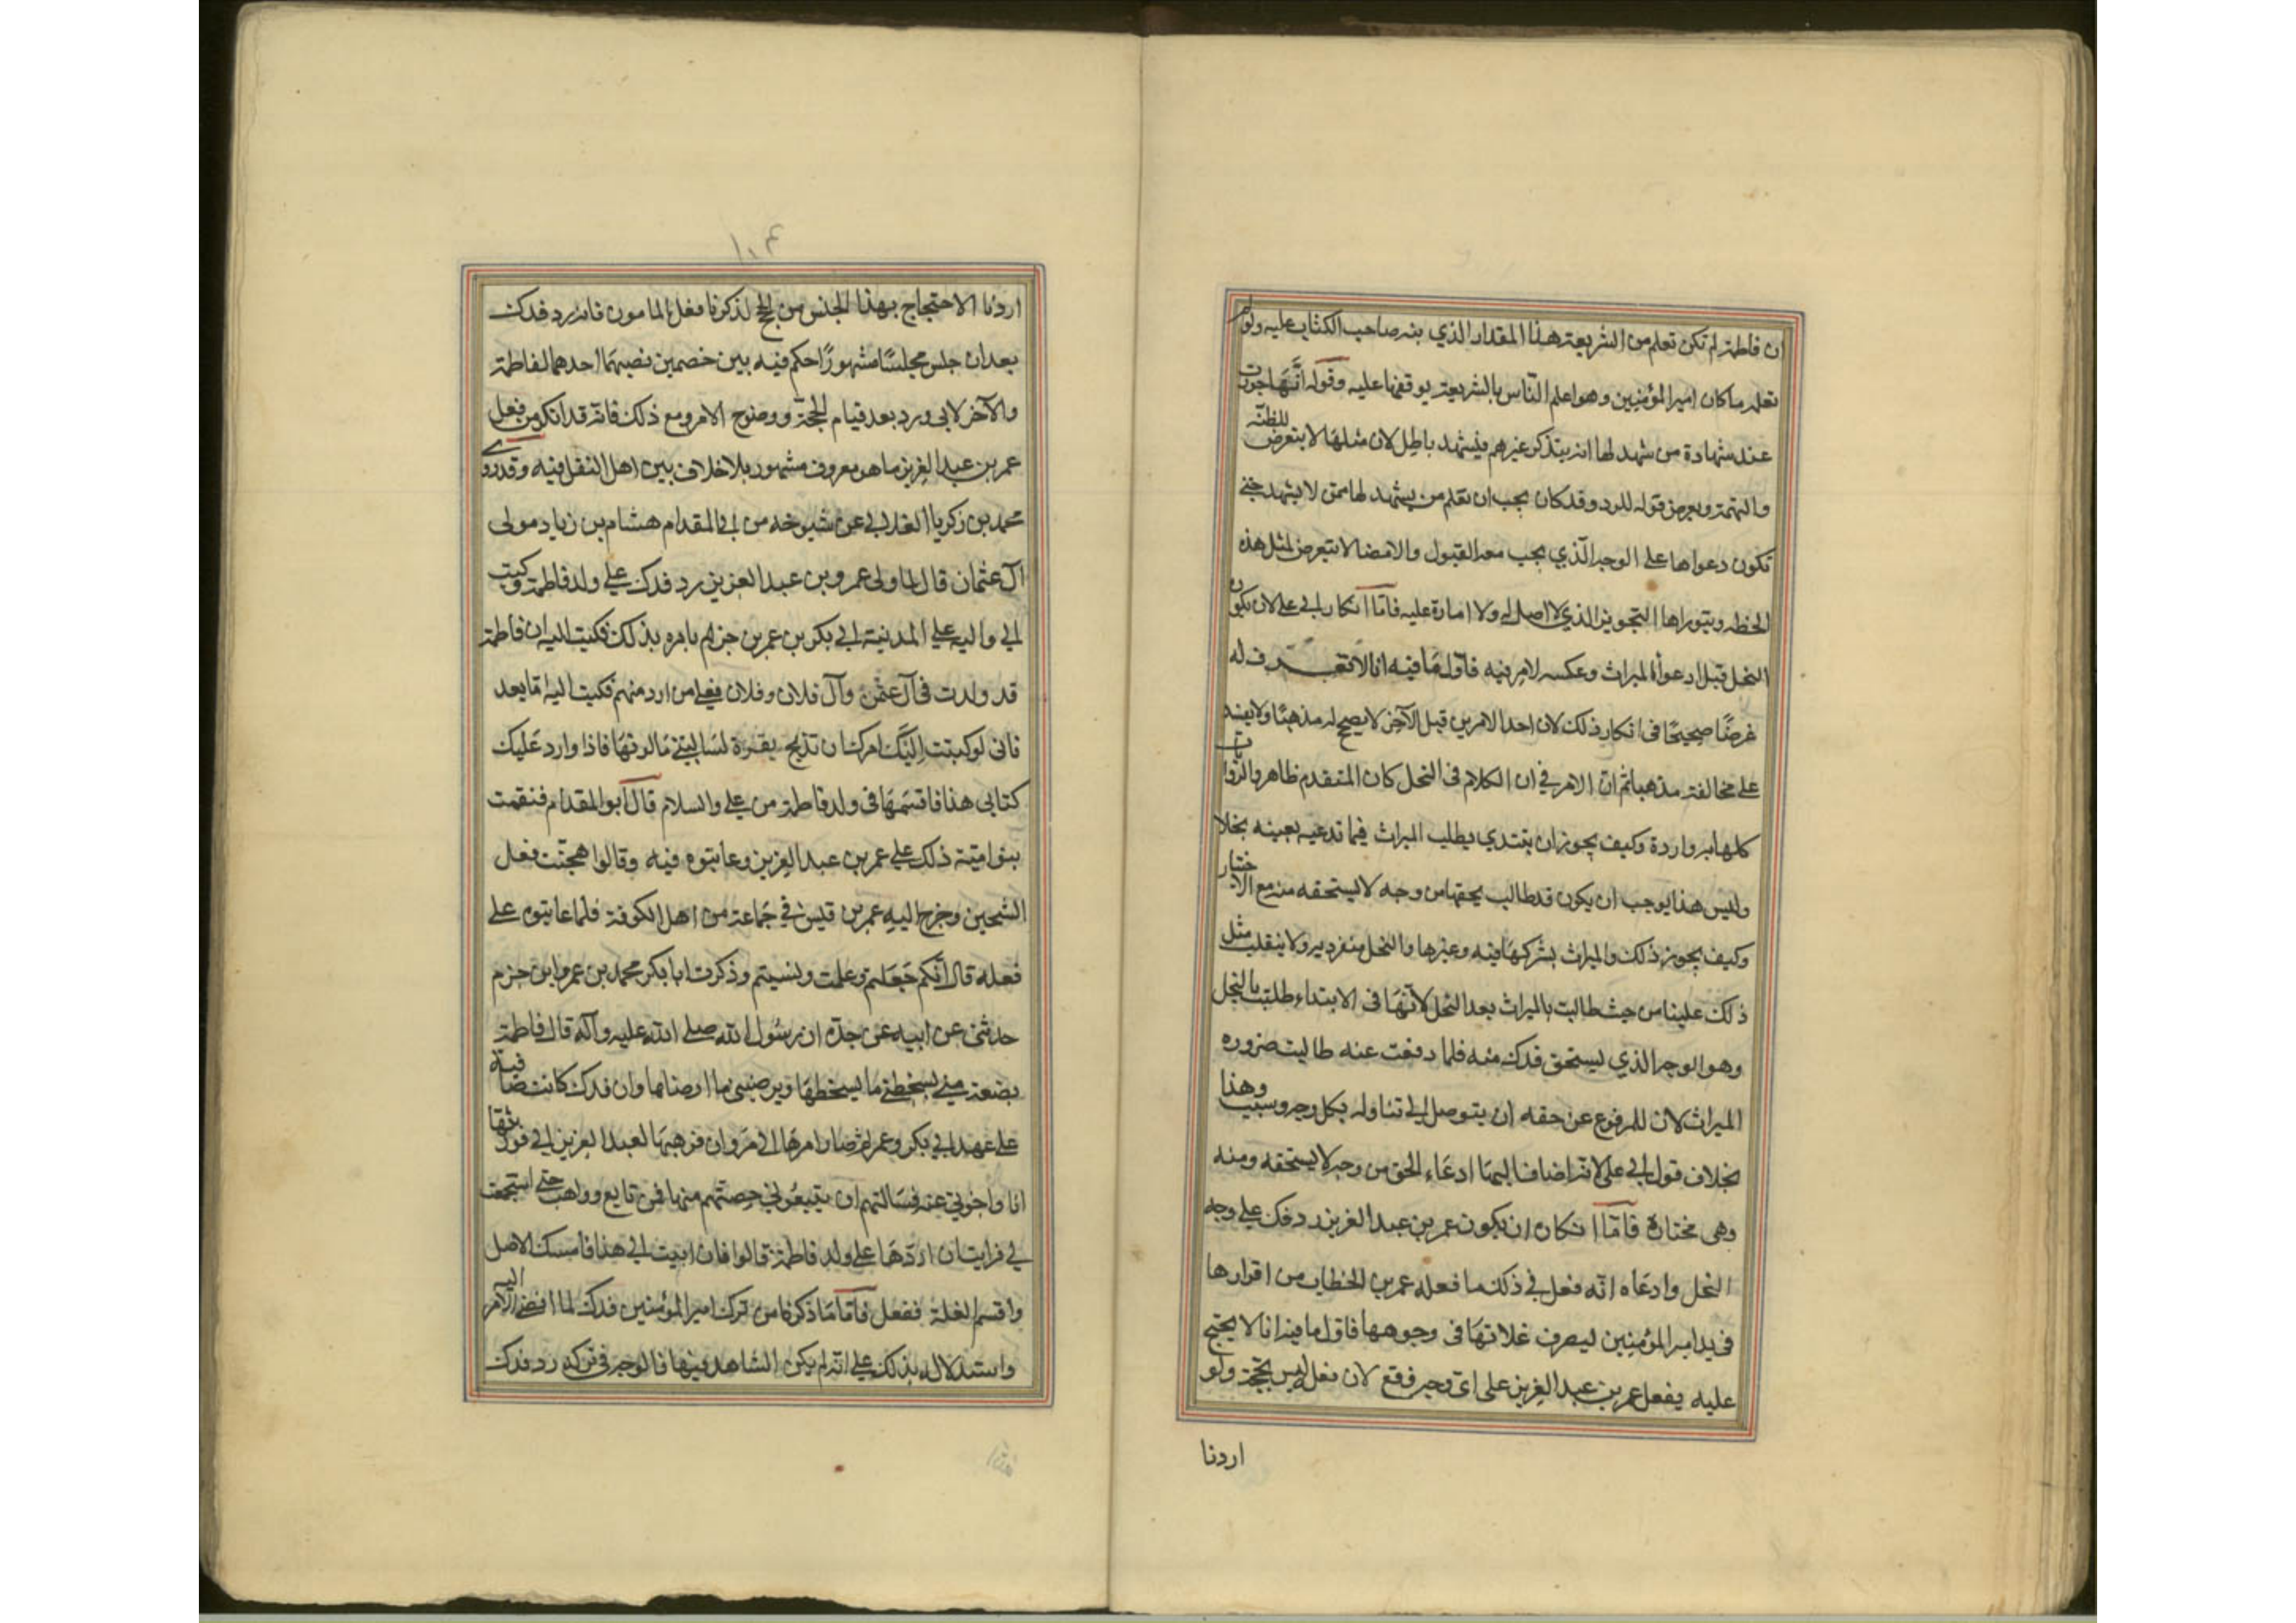 ان فاطمة لم تكن تعلم من الشريعة هذا المقدار الذي نبه صاحب الكتاب عليه ولو لم
تعلمه ما كان امير المؤمنين وهو اعلم الناس بالشريعة يوقفها عليه وقوله انها جوزت
عند شهادة من شهد لها انه يتذكر غيرهم فيشهد باطل لان مثلها لا يتعرض للظنة
والتهمة ويعرض قوله للرد وقد كان يجب ان تعلم من يشهد لها ممن لا يشهد حتى
تكون دعواها على الوجه الذي يجب معه القبول والامضا لا يتعرض لمثل هذه
الخطه ويتوراها التجويز الذي لا اصل له ولا امارة عليه فاما انكار ابي علي لان يكون
النحل قبل ادعوا الميراث وعكسه لامر فيه فاول ما فيه انا لا نعرف له
غرضًا صحيحًا في انكار ذلك لان احد الامرين قبل الآخر لا يصحح له مذهبًا ولا يفسد
على مخالفة مذهبا ثم ان الامر في ان الكلام في النحل كان المتقدم ظاهر والروايات
كلها به واردة وكيف يجوز ان يبتدي بطلب الميراث فيما تدعيه بعينه نحلا
وليس هذا يوجب ان يكون قد طالب بحقها من وجه لا يستحقه منه مع الاختيار
وكيف يجوز ذلك والميراث يشركها فيه وغيرها والنحل منفرد به ولا ينقلب مثل
ذلك علينا من حيث طالبت بالميراث بعد النحل لانها في الابتداء طلبت بالنحل
وهو الوجه الذي يستحق فدك منه فلما دفعت عنه طالبت ضروره
الميراث لان للمرفوع عن حقه ان يتوصل الى تناوله بكل وجه وسبب وهذا
بخلاف قول ابي علي لانه اضاف اليها ادعاء الحق من وجه لا يستحقه ومنه
وهي مختارة فاما انكاره ان يكون عمر بن عبد العزيز رد فدك على وجه
النحل وادعاه انه فعل في ذلك ما فعله عمر بن الخطاب من اقرارها
في يد امير المؤمنين ليصرف غلاتها في وجوهها فاول ما فيه انا لا نحتج
عليه بفعل عمر بن عبد العزيز على اي وجه وقع لان فعله ليس بحجة ولو
اردنا
١٠٤
اردنا الاحتجاج بهذا الجنس من الحجج لذكرنا فعل المامون فانه رد فدك
بعد ان جلس مجلسًا مشهورًا حكم فيه بين خصمين نصبهما احدهما لفاطمة
والآخر لابي ورد بعد قيام الحجة ووضوح الامر ومع ذلك فانه قد انكر من فعل
عمر بن عبد العزيز ما هو معروف مشهور بلا خلاف بين اهل النقل فيه وقد روى
محمد بن زكريا الغلابي عن شيوخه من ابي المقدام هشام بن زياد مولى
آل عثمان قال لما ولى عمر وبن عبد العزيز رد فدك على ولد فاطمة وكتب
الى واليه على المدينة ابي بكر بن عمر بن حزم يامره بذلك فكتب اليه ان فاطمة
قد ولدت في آل عثمن وآل فلان وفلان فعلى من ارد منهم فكتب اليه اما بعد
فاني لو كتبت اليك امرك ان تذبح بقرة لسالتني ما لونها فاذا وارد عليك
كتابي هذا فاقسمها في ولد فاطمة من علي والسلام قال ابو المقدام فنقمت
بنو امية ذلك على عمر بن عبد العزيز وعاتبوه فيه وقالوا هجنت فعل
الشيخين وخرج اليه عمر بن قيس في جماعة من اهل الكوفة فلما عاتبوه على
فعله قال انكم جهلتم وعلمت ونسيتم وذكرت ابا بكر محمد بن عمر وابن حزم
حدثني عن ابيه عن جده ان رسول الله صلى الله عليه وآله قال فاطمة
بضعة مني يسخطني ما يسخطها ويرضيني ما ارضاها وان فدك كانت ضافية
على عهد ابي بكر وعمر ثم صار امرها الى مروان فوهبها لعبد العزيز ابي فورثها
انا واخوتي عنه فسالتهم ان يبيعوني حصتهم منها فمن تايع وواهب حتى استجمعت
لي فرايت ان اردها على ولد فاطمة قالوا فان ابيت الى هذا فامسك الاصل
واقسم الغلة ففعل فاما ما ذكرنا من ترك امير المؤمنين فدك لما افضى الامر اليه
واستدلاله بذلك على انه لم يكن الشاهد فيها فالوجه في تركه رد فدك